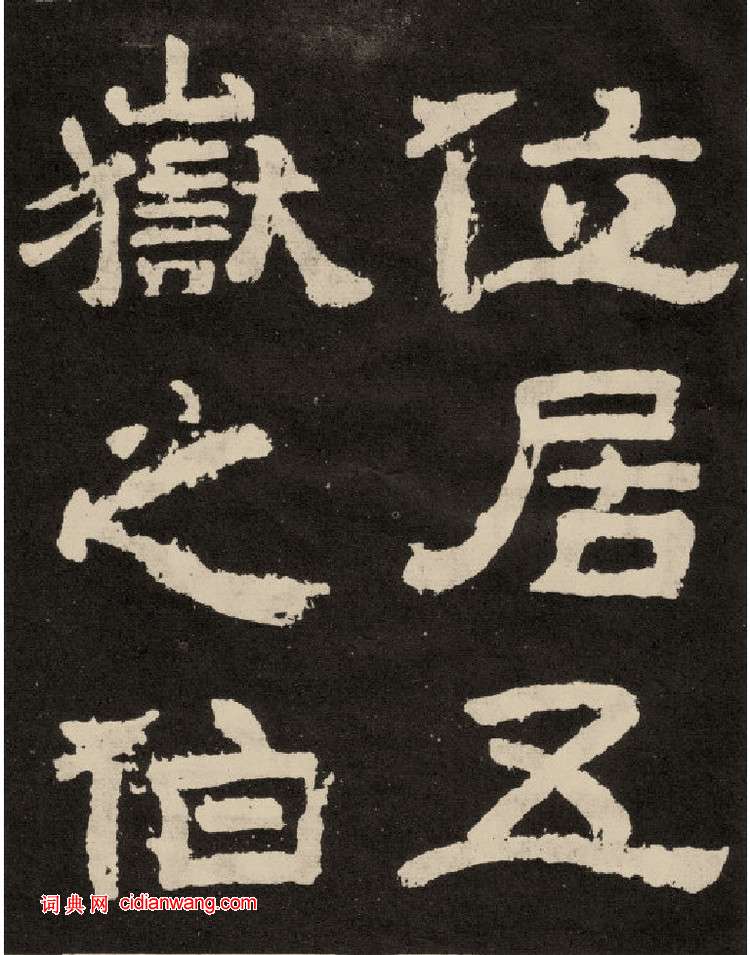 位居五
嶽之伯
词典网 cidianwang.com